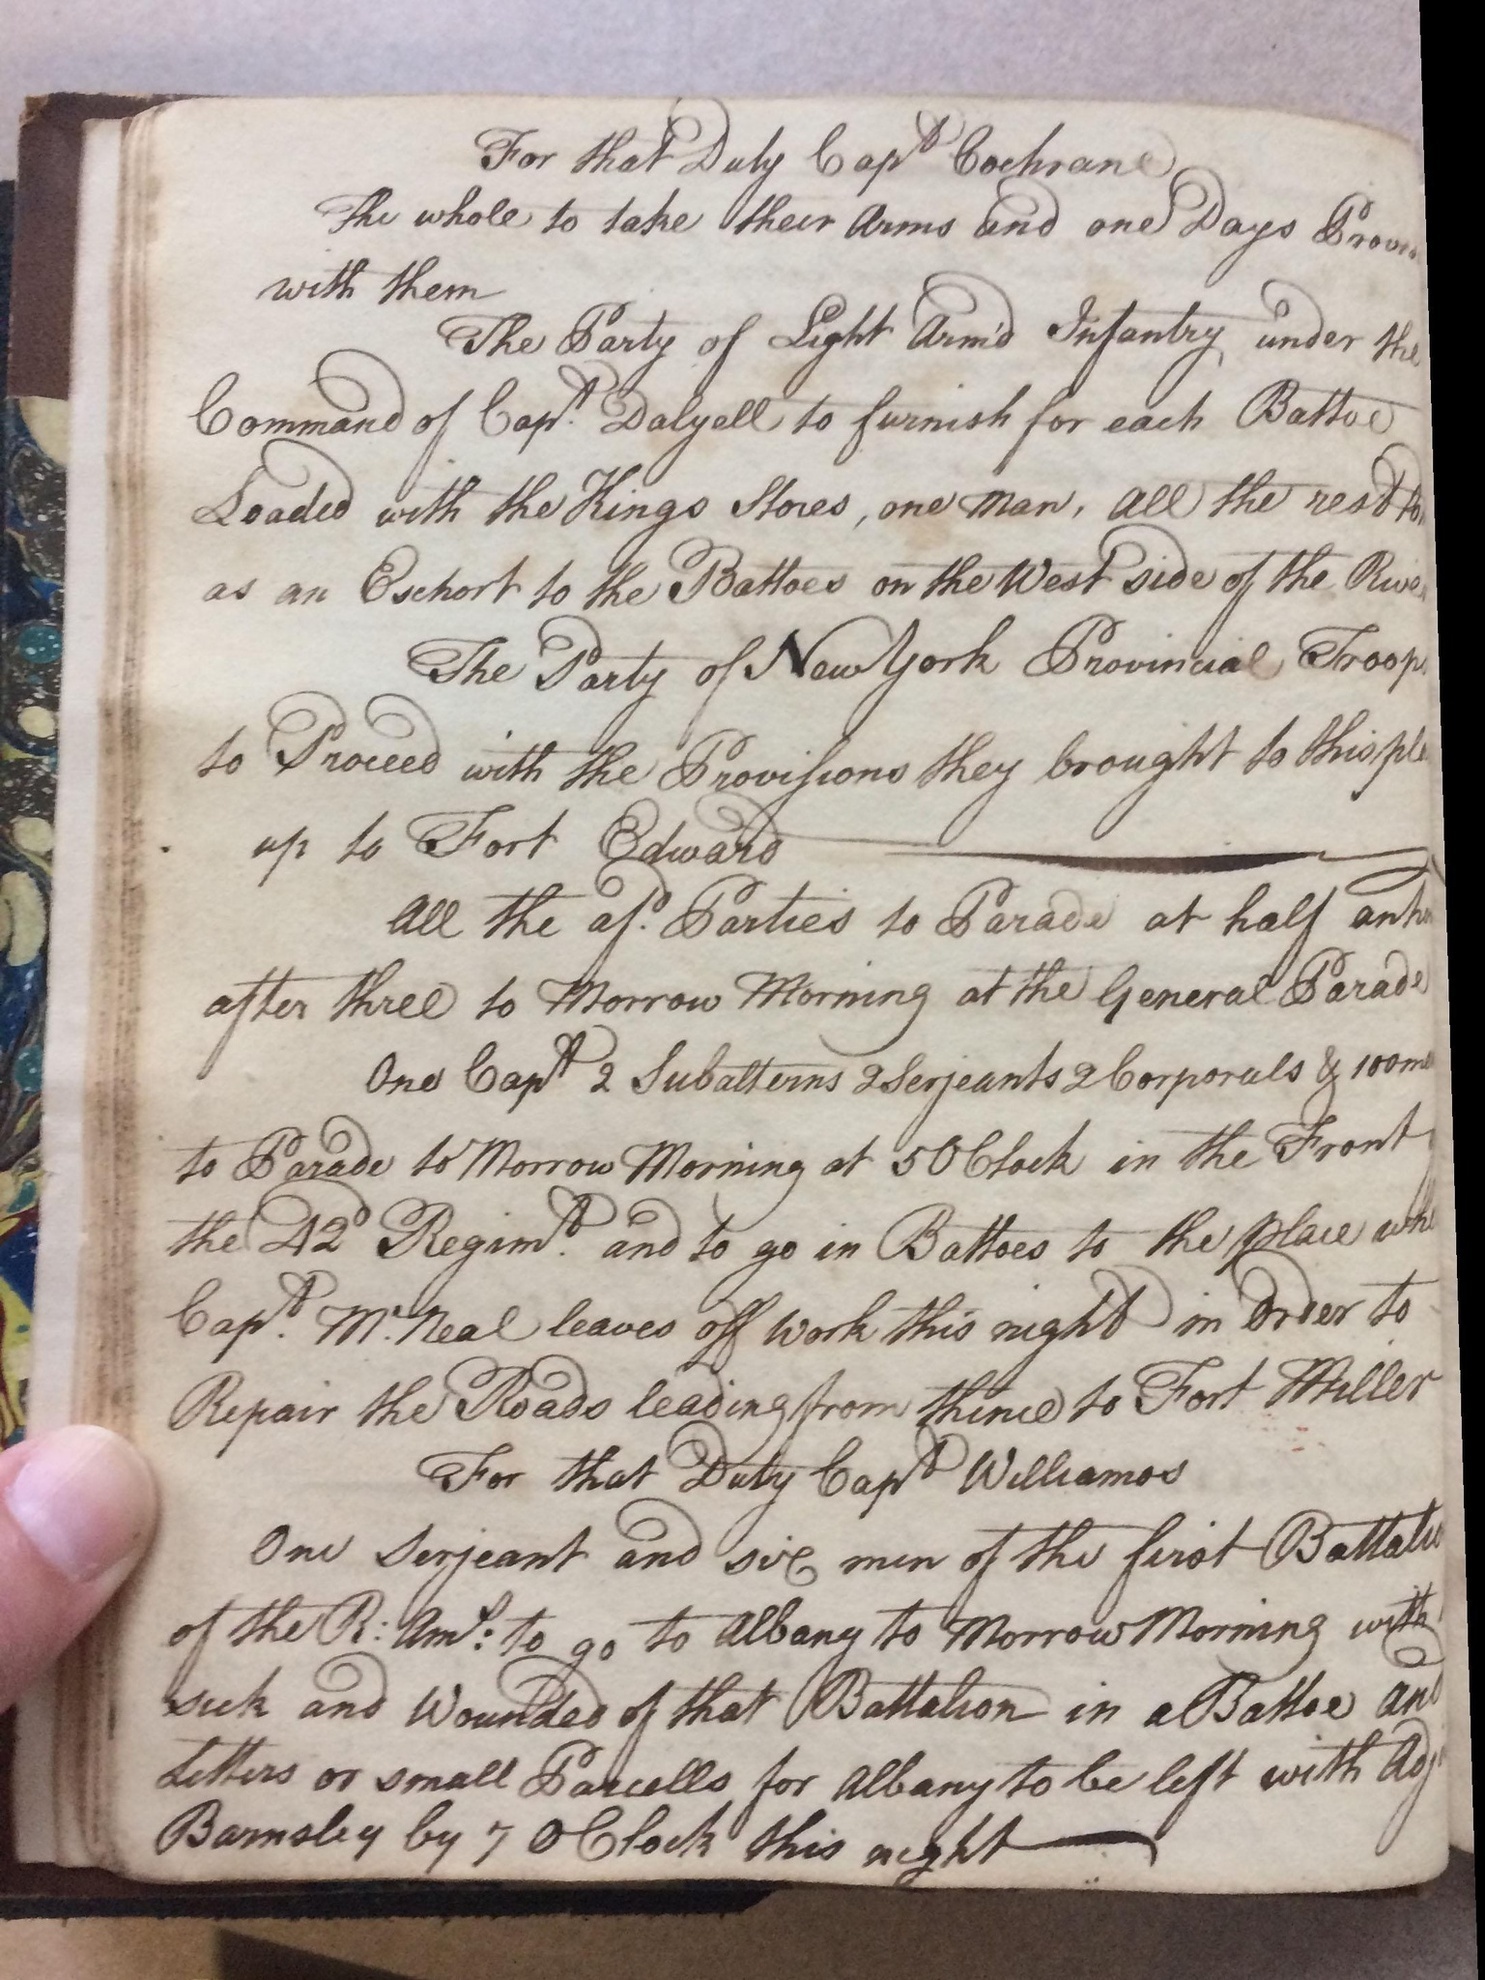 For that Duty Capt Cochrane
The whole to take their Arms and one Days
with them
The Party of Light Arm'd Infantry under the
Command of Capt. Dalyell to furnish for each Battoe
Loaded with the Kings Stores, one Man, All the rest to
as an Eschort to the Battoes on the West side of the
The Party of New York Provincial Troops
to Proceed with the Provisions they brought to this
up to Fort Edward
All the afd. Parties to Parade at half an
after three to Morrow Morning at the General Parade
One Capt 2 Subalterns 2 Serjeants 2 Corporals & 100
to Parade to Morrow Morning at 5 OClock in the Front
the 42d Regimt. and to go in Battoes to the place
Capt. Mc.Neal leaves off work this night in Order to
Repair the Roads leading from thence to Fort Miller
For that Duty Capt Williamos
One Serjeant and six men of the first
of the R: Ams: to go to Albany to Morrow Morning with
sick and Wounded of that Battalion in a Battoe and
Letters or small Parcells for Albany to be left with
Barnsley by 7 OClock this night